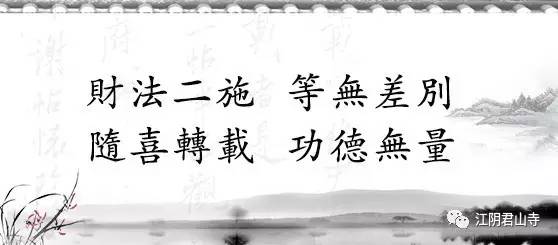 財法二施 等無差別
隨喜轉載 功德無量
江阴君山寺